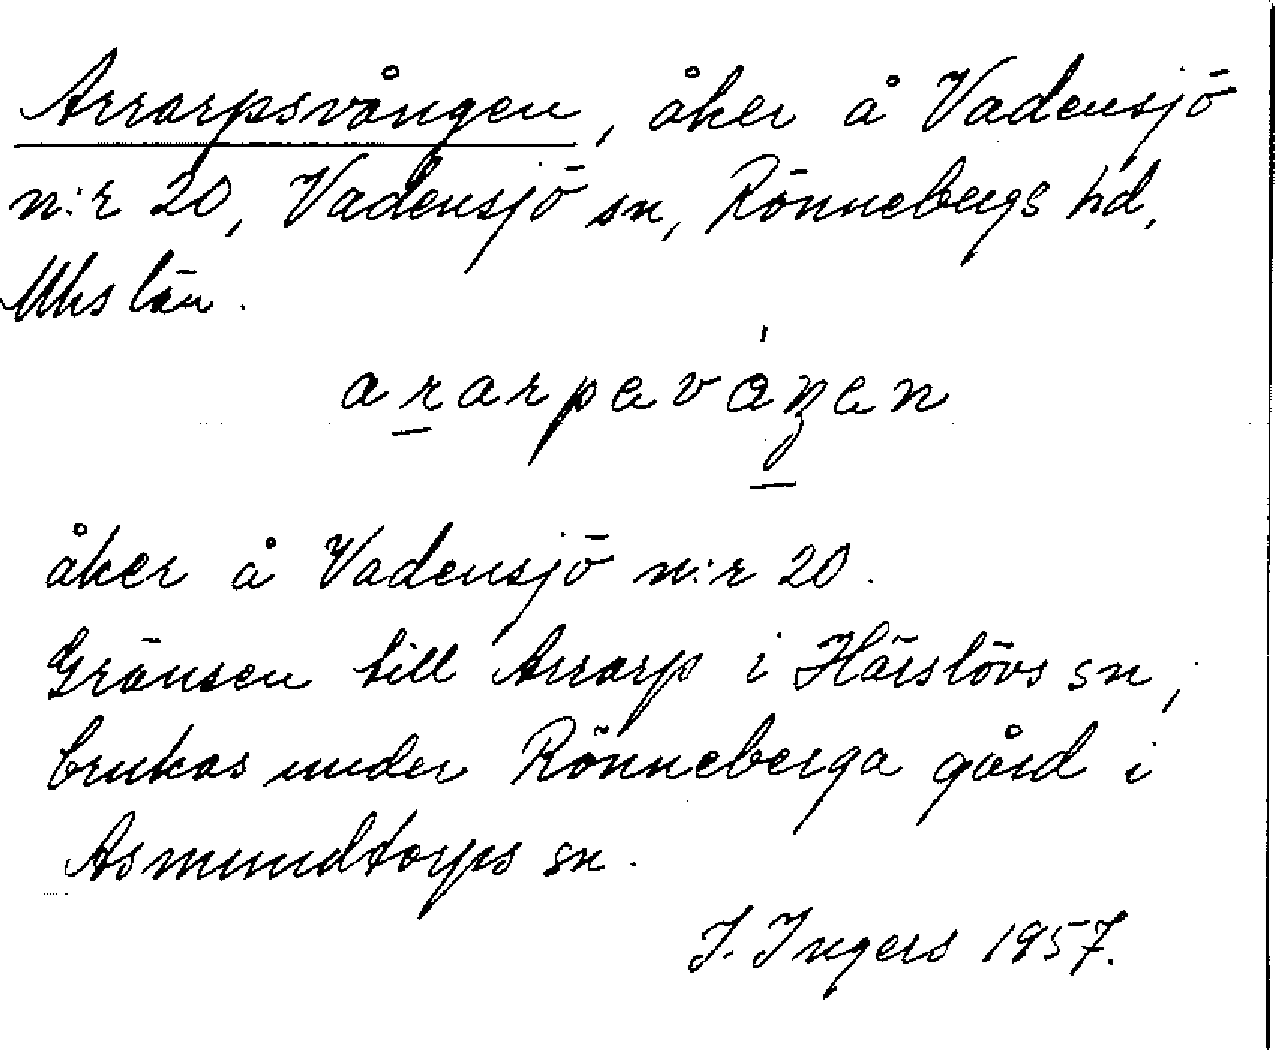 Arrarpsvången, åker å Vadensjö
n:r 20, Vadensjö sn, Rönnebergs hd,
Mhs län.
åker å Vadensjö n:r 20.
Gränsen till Arrarp i Härslövs sn,
brukas under Rönneberga gård i
Asmundtorps sn.
I. Ingers 1957.